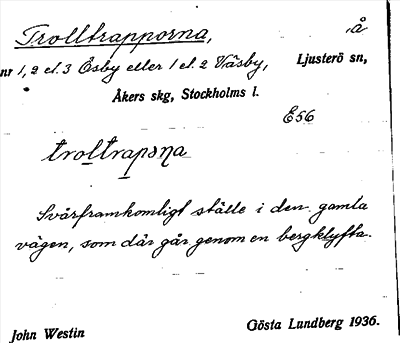 Trolltrapporna, å
nr 1, 2 el. 3 Åsby eller 1 el. 2 Väsby, Ljusterö sn,
Åkers skg, Stockholms l.
E56
trol̲trapɔn̲a
Svårframkomligt ställe i den gamla
vägen, som där går genom en bergklyfta.
John Westin Gösta Lundberg 1936.